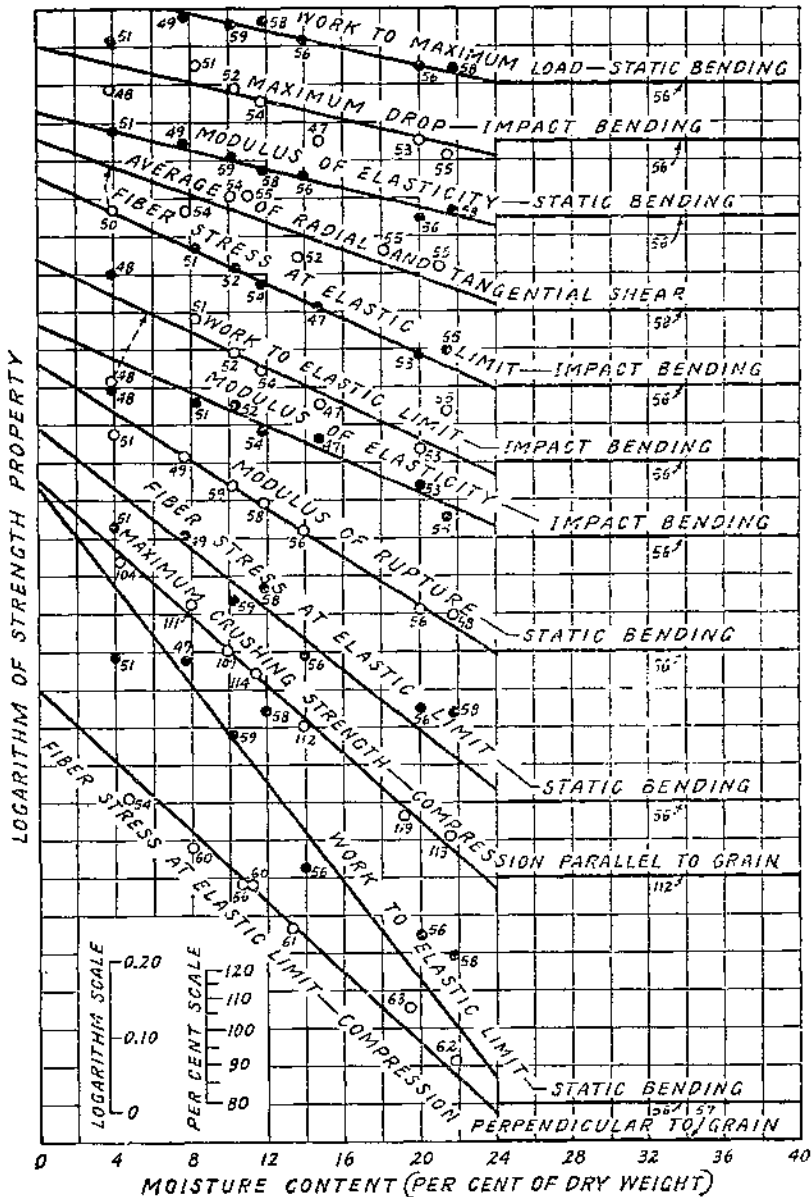 WORK TO MAXIMUM LOAD—STATIC BENDING
MAXIMUM DROP—IMPACT BENDING
MODULUS OF ELASTICITY—STATIC BENDING
AVERAGE OF RADIAL AND TANGENTIAL SHEAR
FIBER STRESS AT ELASTIC LIMIT—IMPACT BENDING
WORK TO ELASTIC LIMIT
IMPACT BENDING
MODULUS OF ELASTICITY
IMPACT BENDING
MODULUS OF RUPTURE
STATIC BENDING
FIBER STRESS AT ELASTIC LIMIT
STATIC BENDING
MAXIMUM CRUSHING STRENGTH—COMPRESSION PARALLEL TO GRAIN
WORK TO ELASTIC LIMIT
STATIC BENDING
FIBER STRESS AT ELASTIC LIMIT—COMPRESSION
PERPENDICULAR TO GRAIN
51 49 59 58 56 56 58 56
48 51 52 54 47 53 55 56
51 49 59 58 56 56 58 56
50 54 54 55 52 55 56 58
48 51 52 54 47 53 55 56
48 51 52 54 47 53 55 56
48 51 52 54 47 53 56
51 49 59 58 56 56 58 56
51 49 59 58 56 56 58 56
104 111 107 114 112 119 113 112
51 47 59 58 56 56 58 56
54 60 60 61 63 62 57
LOGARITHM OF STRENGTH PROPERTY
LOGARITHM SCALE
0.20
0.10
0
PER CENT SCALE
120
110
100
90
80
0 4 8 12 16 20 24 28 32 36 40
MOISTURE CONTENT (PER CENT OF DRY WEIGHT)